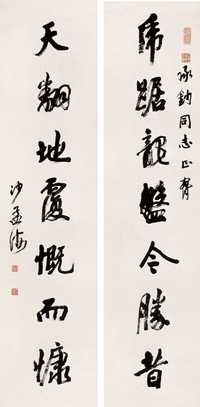 虎踞龍盤今勝昔
承鈞同志正腕
天翻地覆慨而慷
沙孟海